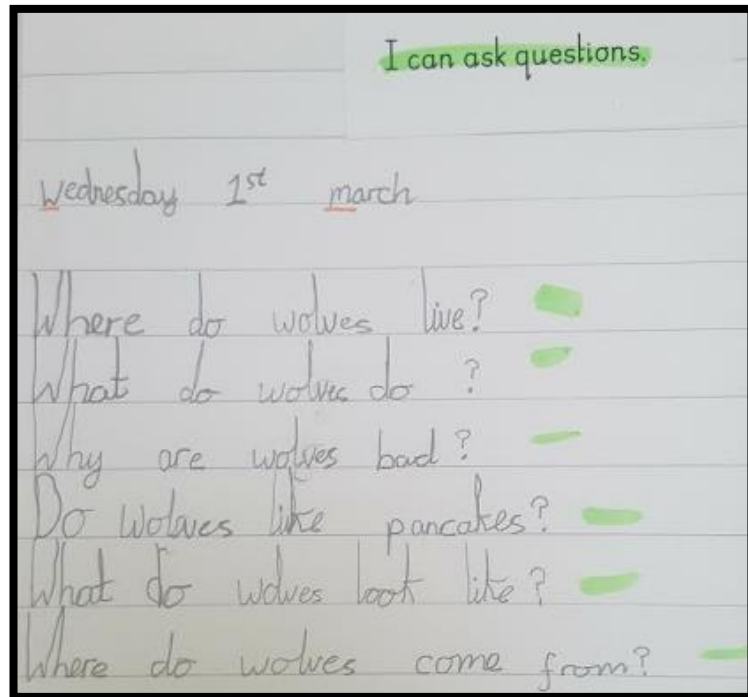 I can ask questions.
wednesday 1st march
Where do wolves live?
What do wolves do ?
Why are wolves bad?
Do wolves like pancakes?
What do wolves look like?
Where do wolves come from?